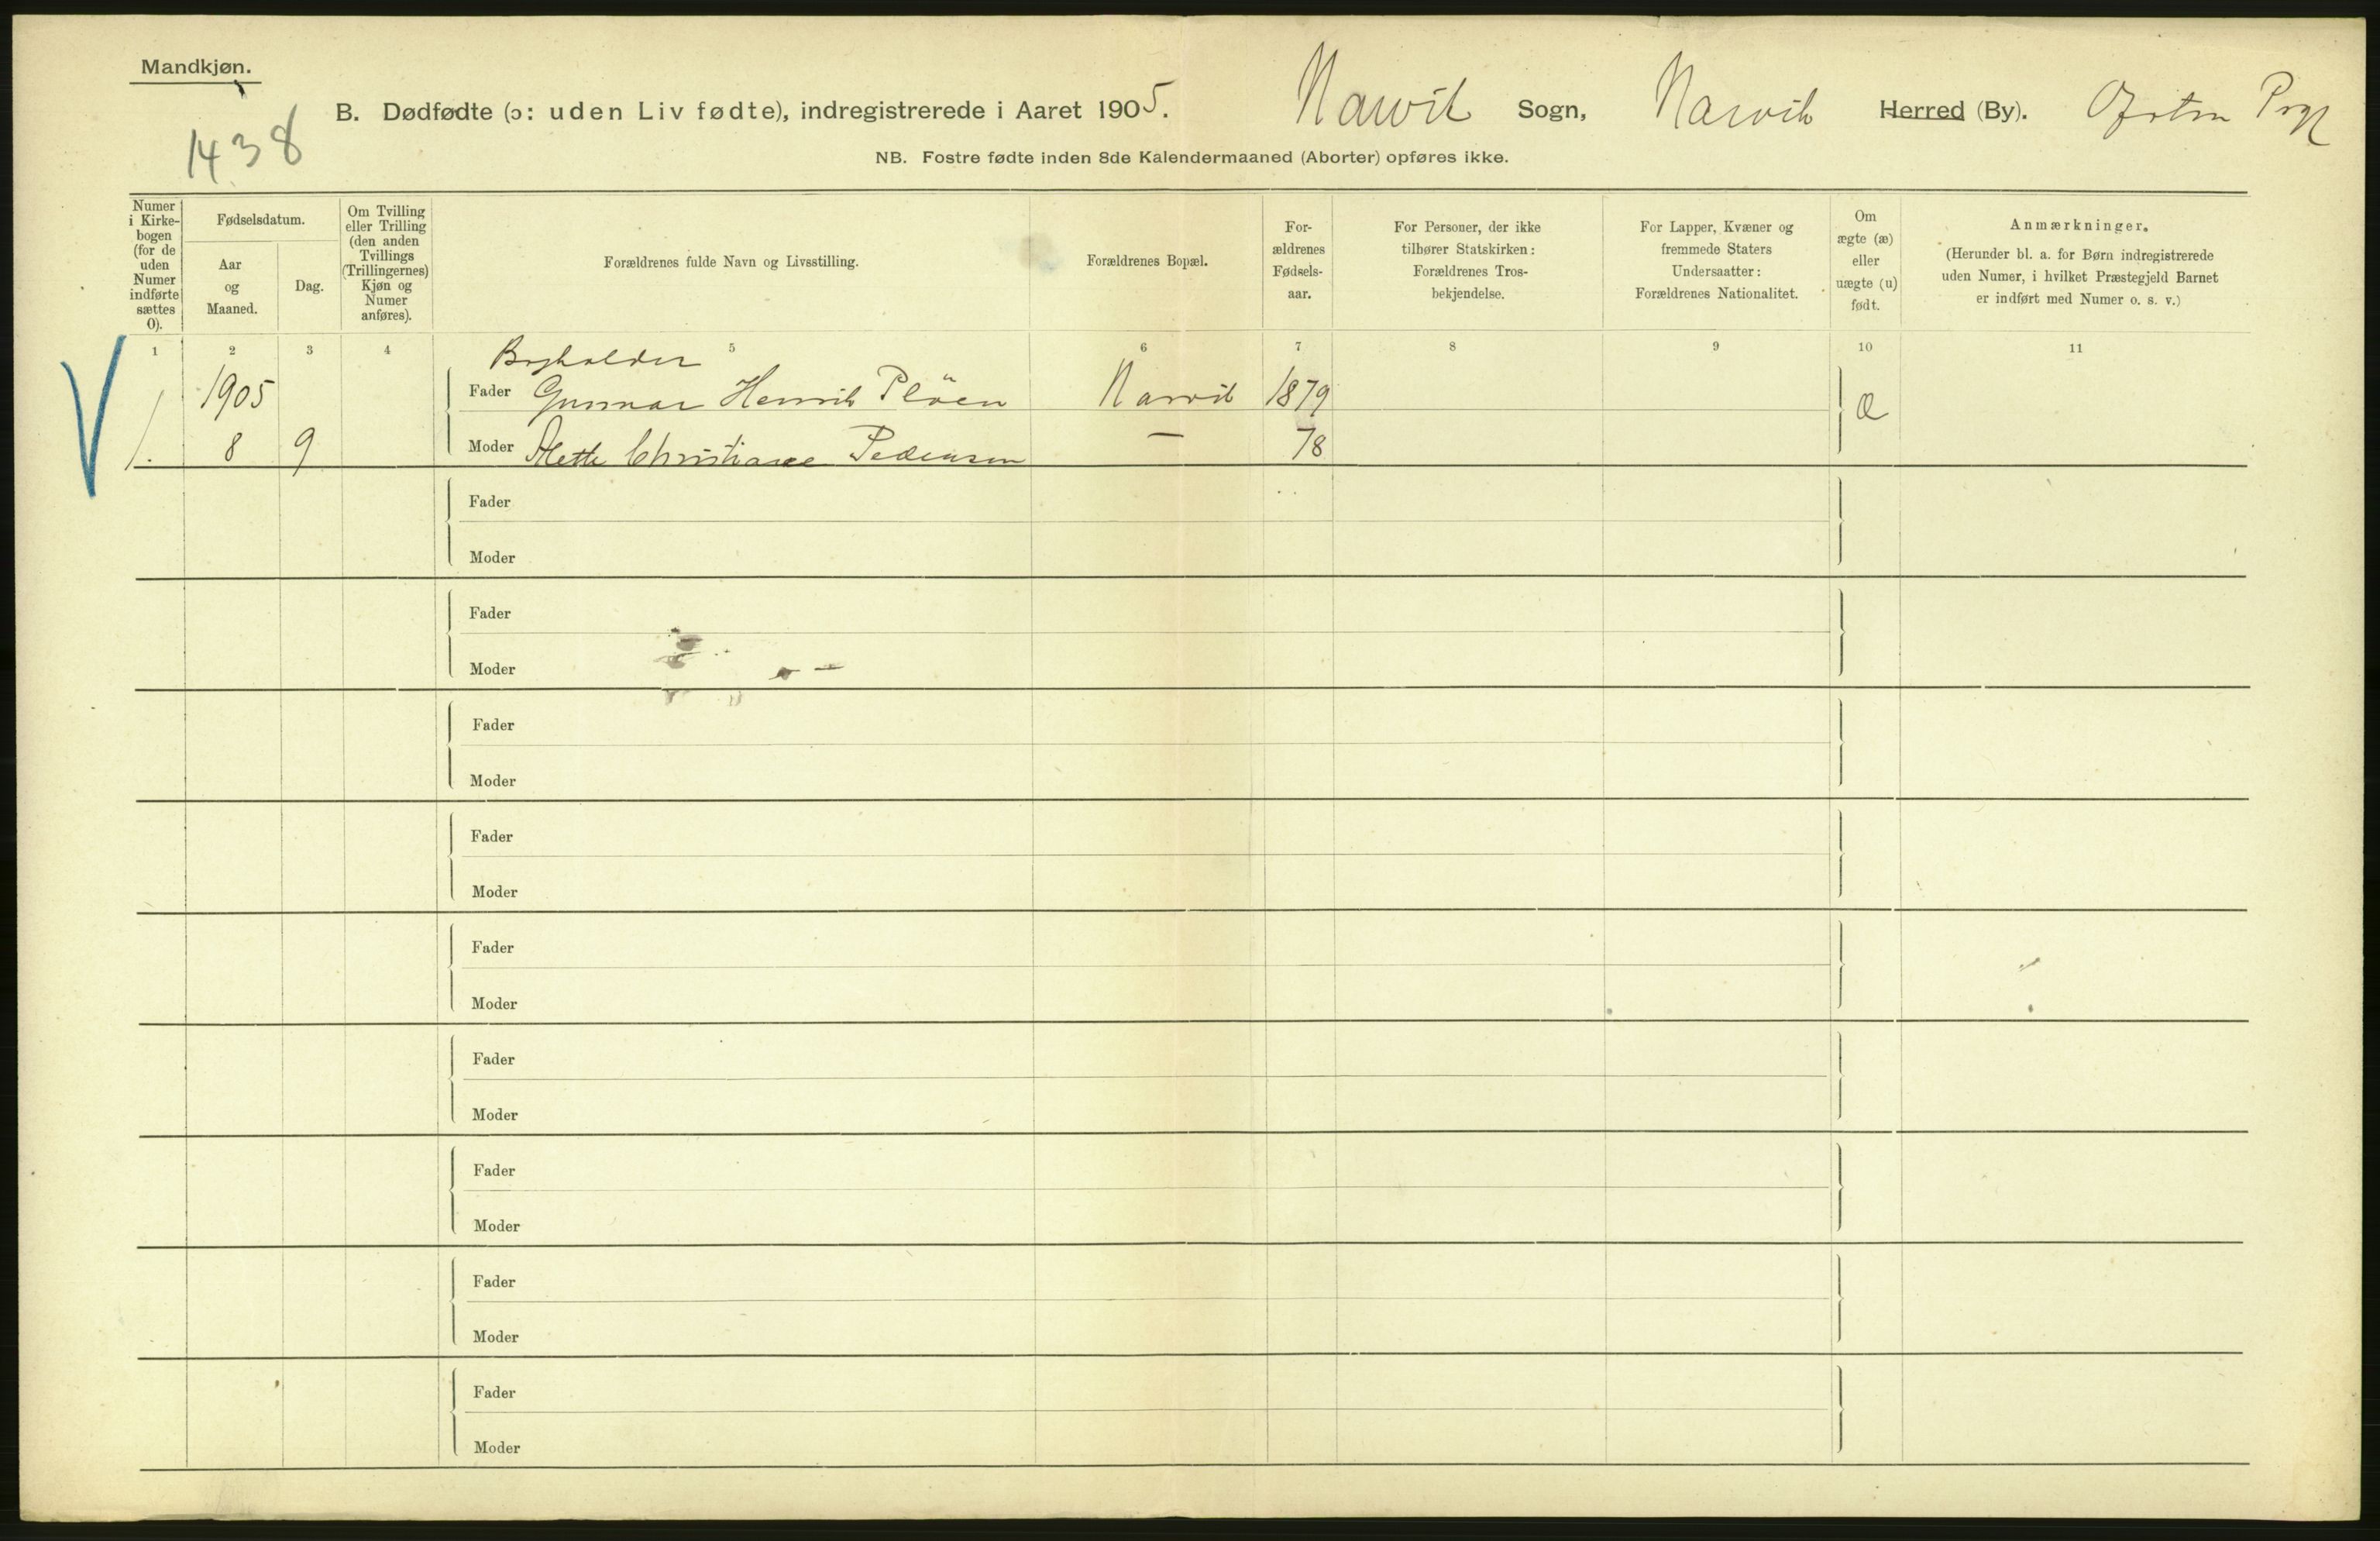 Mandkjøn.
1438
B. Dødfødte (ɔ: uden Liv fødte), indregistrerede i Aaret 1905. Narvik Sogn, Narvik Herred (By). Ofoten Prgj
NB. Fostre fødte inden 8de Kalendermaaned (Aborter) opføres ikke.
Numer i Kirke-
bogen
(for de
uden
Numer
indførte
sættes
0).
Fødselsdatum.
Aar
og
Maaned.
Dag.
Om Tvilling
eller Trilling
(den anden
Tvillings
(Trillingernes)
Kjøn og
Numer
anføres).
Forældrenes fulde Navn og Livsstilling.
Forældrenes Bopæl.
For-
ældrenes
Fødsels-
aar.
For Personer, der ikke
tilhører Statskirken:
Forældrenes Tros-
bekjendelse.
For Lapper, Kvæner og
fremmede Staters
Undersaatter:
Forældrenes Nationalitet.
Om
ægte (æ)
eller
uægte (u)
født.
Anmærkninger.
(Herunder bl. a. for Børn indregistrerede
uden Numer, i hvilket Præstegjeld Barnet
er indført med Numer o. s. v.)
1 2 3 4 5 6 7 8 9 10 11
Bogholder
1905 Fader Gunnar Henrik Plöen Narvik 1879 æ
1. 8 9 Moder Mette Christiane Pedersen — 78
Fader
Moder
Fader
Moder
Fader
Moder
Fader
Moder
Fader
Moder
Fader
Moder
Fader
Moder
Fader
Moder
Fader
Moder